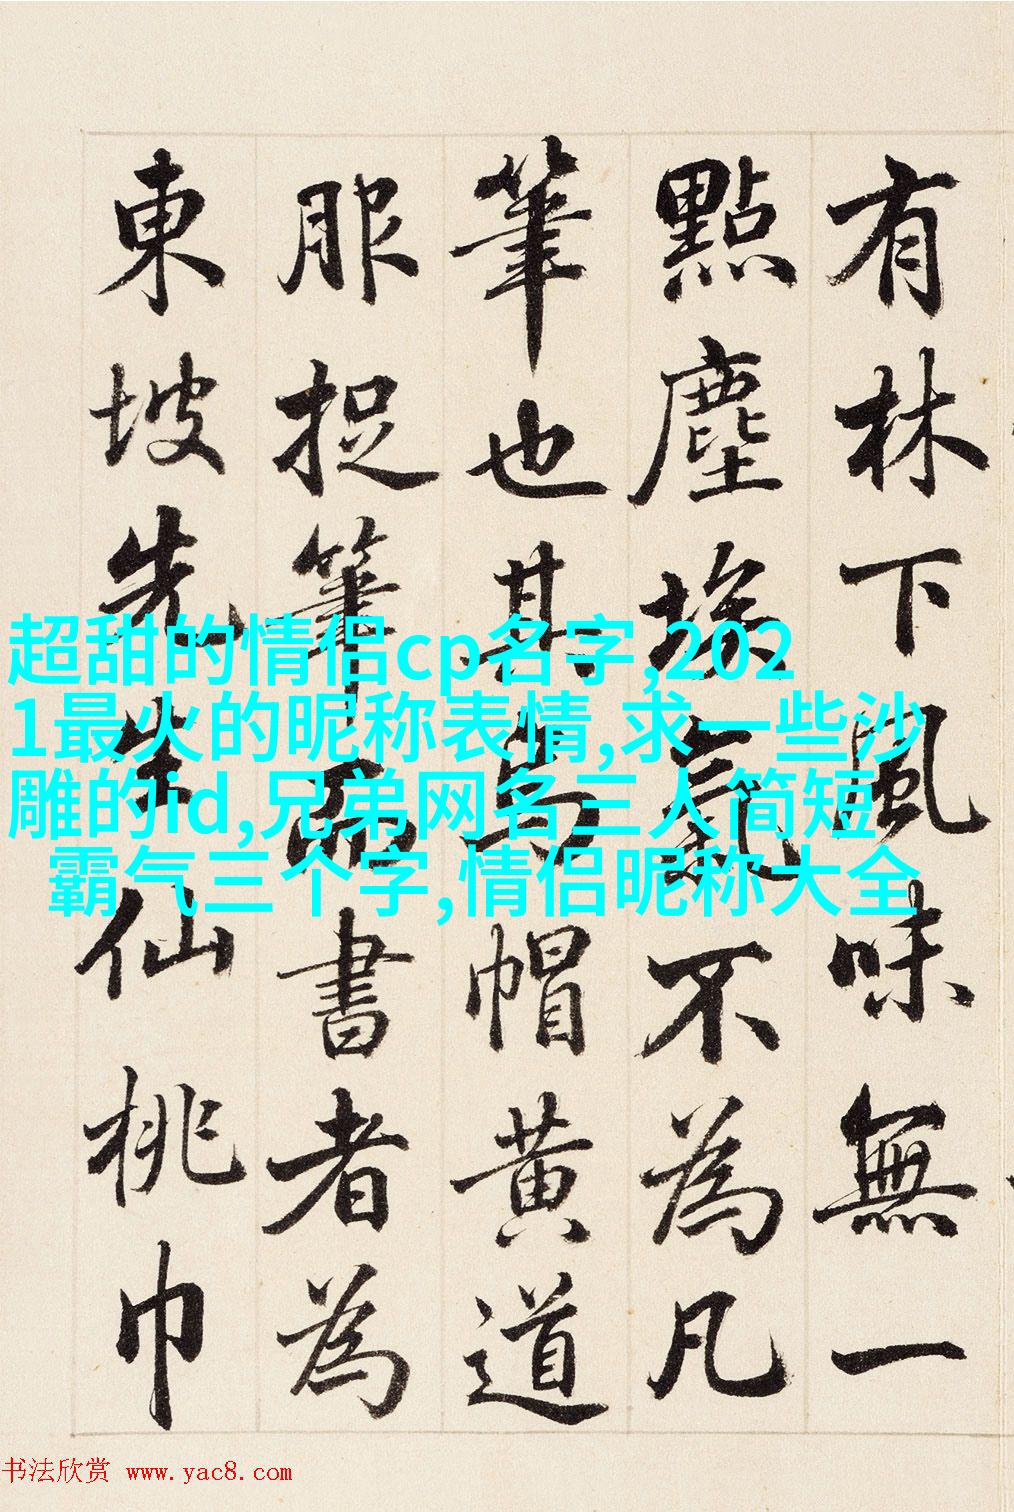 有林下風味無一
點塵埃氣不為凡
筆也其烏帽黃道
服捉筆而書者為
東坡先生仙桃巾
超甜的情侣cp名字,202
1最火的昵称表情,求一些沙
雕的id,兄弟网名三人简短
霸气三个字,情侣昵称大全
书法欣赏 www.yac8.com